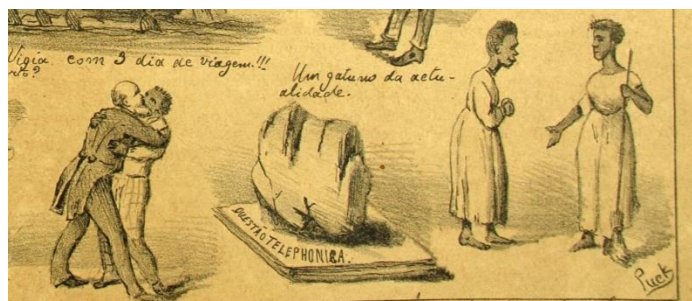 Vigia, com 3 dia de viagem.!!!
Um gatuno da actu-
alidade.
QUESTÃO TELEPHONICA.
Puck